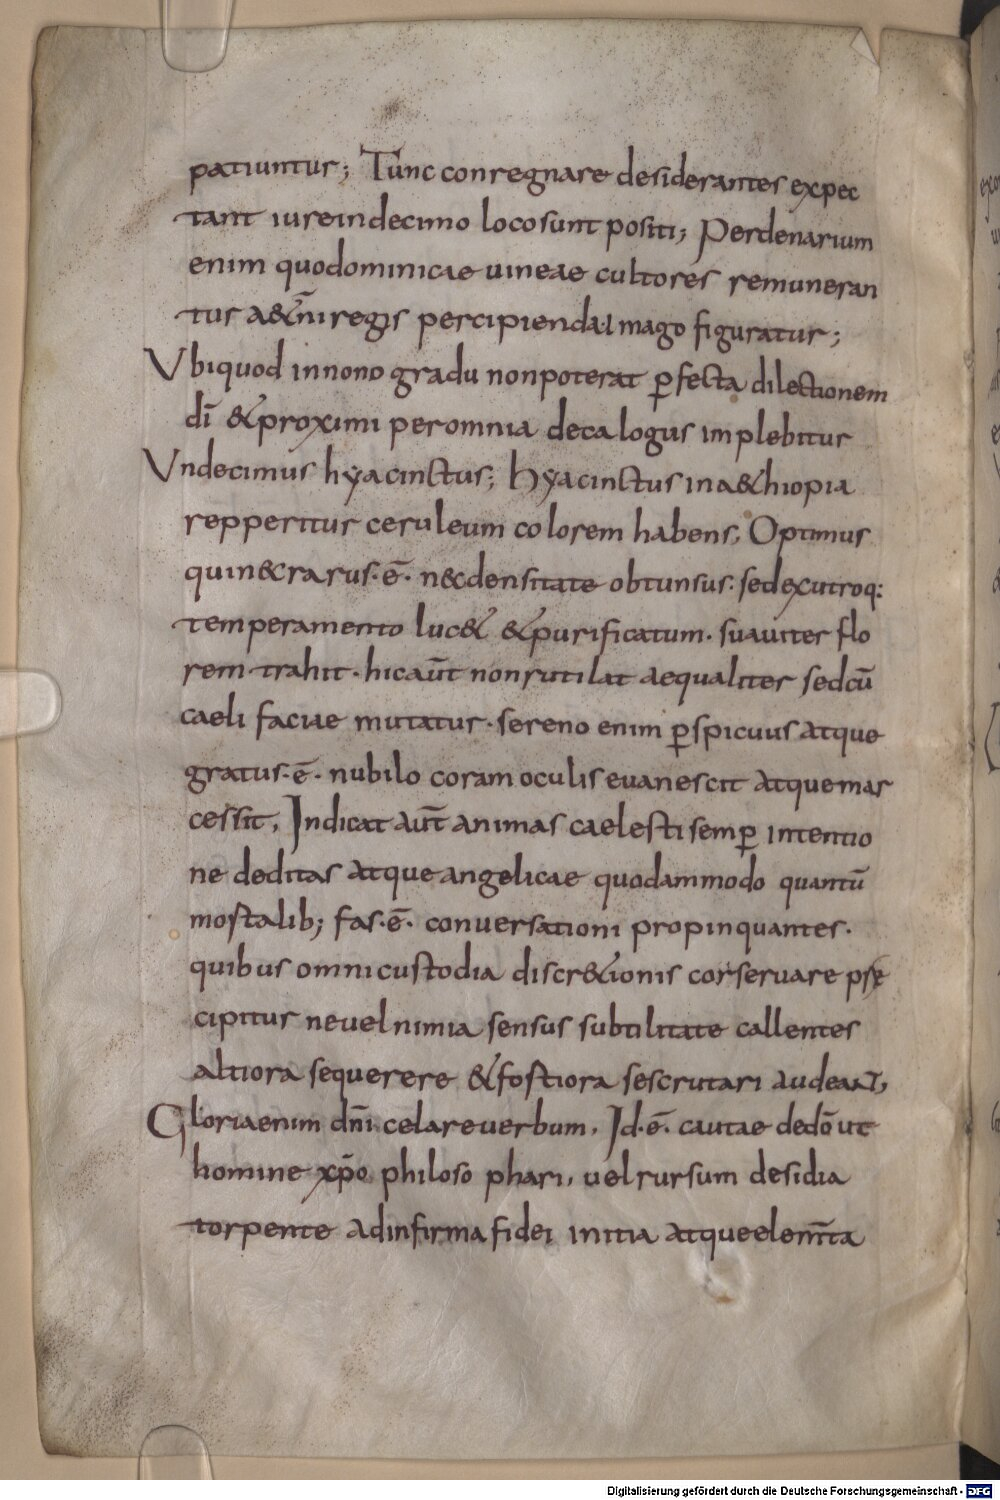 patiuntur; Tunc conregnare desiderantes expec
tant iure indecimo loco sunt positi; Perdenarium
enim quo dominicae uineae cultores remuneran
tur a&̄ni regis percipienda imago figuratur;
Vbi quod innono gradu non poterat ꝑfecta dilectionem
dī & proximi per omnia decalogus implebitur
Vndecimus hyacinctus; hyacinctus in a&hiopia
repperitur ceruleum colorem habens; Optimus
qui n& rarus·ē· nec densitate obtunsus· sed ex utroq:
temperamento luc& & purificatum· suauiter flo
rem trahit· hic aūt non rutilat aequaliter sed cū
caeli faciae mutatur· sereno enim ꝑspicuus atque
gratus·ē· nubilo coram oculis euanescit atque mar
cessit, Indicat aūt animas caelesti semꝑ intentio
ne deditas atque angelicae quodammodo quantū
mortalib; fas·ē· conuersationi propinquantes·
quibus omni custodia discr&ionis corseruare pre
cipitur ne uel nimia sensus subtilitate callentes
altiora sequerere & fortiora se scrutari audeant;
Gloria enim dn̄i celare uerbum, Id·ē· cautae de dō ut
homine xp̄o philosophari, uel rursum desidia
torpente ad infirma fidei initia atque elem̄ta
Digitalisierung gefördert durch die Deutsche Forschungsgemeinschaft - DFG